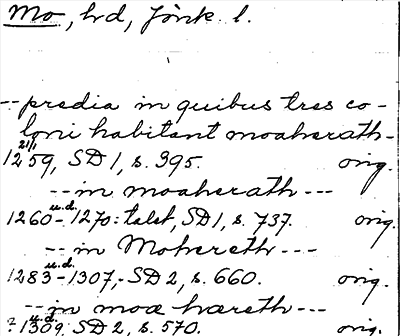 Mo, hd, Jönk. l.
-- predia in quibus tres co-
loni habitant moahærath-
21/1
1259, SD 1, s. 395. orig.
-- in moahærath ---
u.d.
1260- 1270: talet, SD 1, s. 737. orig.
-- in Mohæreth ---
u.d.
1283-1307,- SD 2, s. 660. orig.
-- in moa hæreth ---
u.d.
? 1309. SD 2, s. 570. orig.